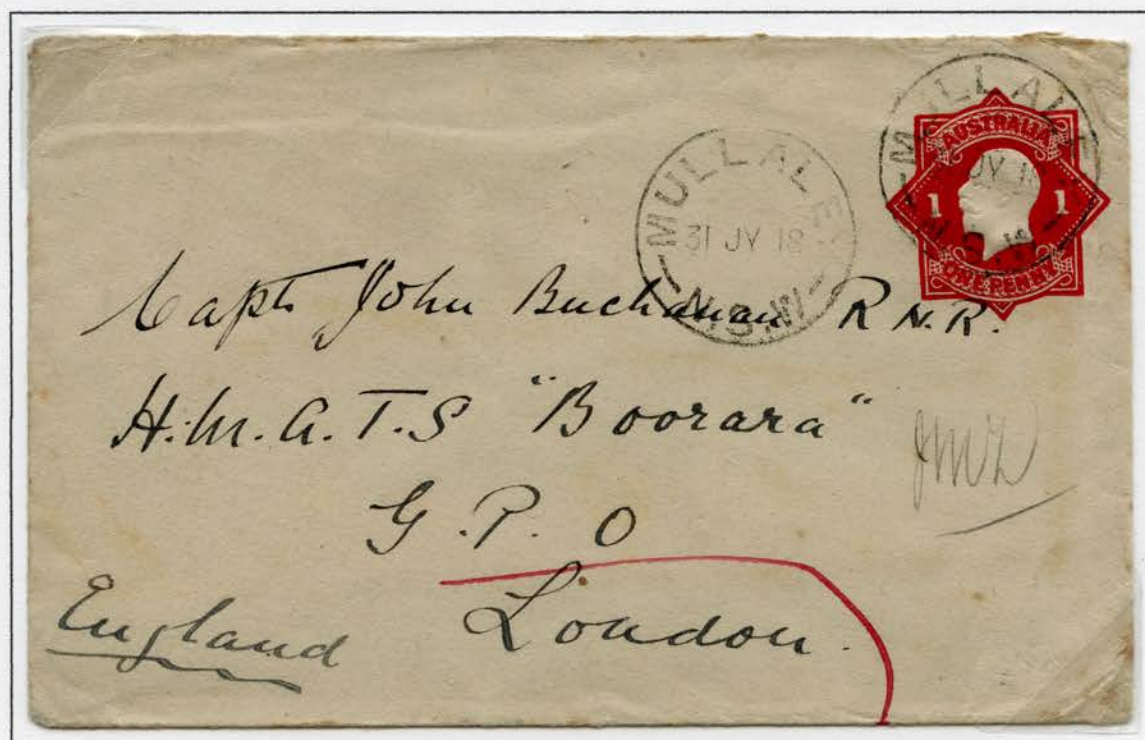 MULLALEY
31 JY 18
N.S.W
MULLALEY
JY 18
N.S.W
AUSTRALIA
1 1
ONE PENNY
Capt John Buchanan R.N.R.
H.M.A.T.S "Boorara"
G.P.O
London.
England